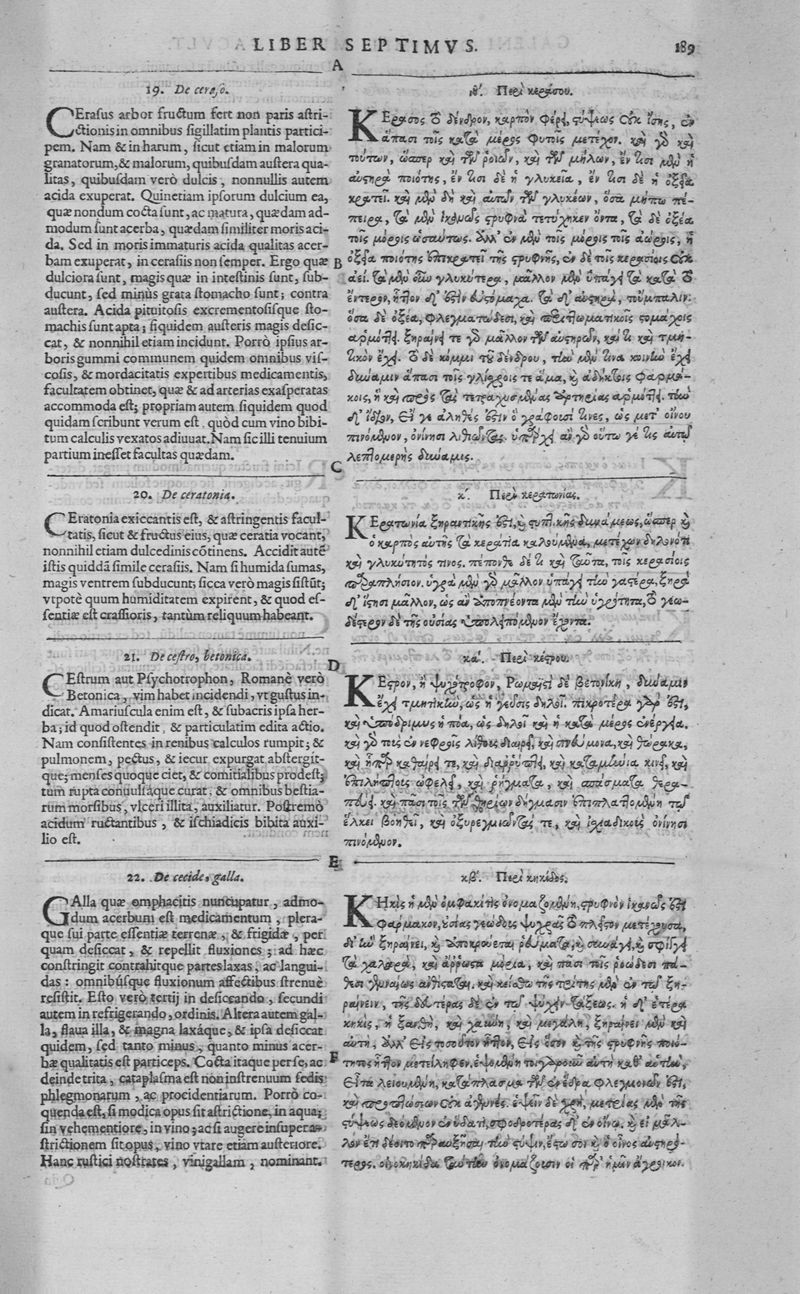 LIBER SEPTIMVS.
189
A
19. De ceraso.
CErasus arbor fructum fert non paris astri-
ctionis in omnibus sigillatim plantis partici-
pem. Nam & in harum, sicut etiam in malorum
granatorum, & malorum, quibusdam austera qua-
litas, quibusdam verò dulcis, nonnullis autem
acida exuperat. Quinetiam ipsorum dulcium ea,
quæ nondum cocta sunt, ac matura, quædam ad-
modum sunt acerba, quædam similiter moris aci-
da. Sed in moris immaturis acida qualitas acer-
bam exuperat, in cerasiis non semper. Ergo quæ
dulciora sunt, magis quæ in intestinis sunt, sub-
ducunt, sed minùs grata stomacho sunt; contra
austera. Acida pituitosis excrementosisque sto-
machis sunt apta; siquidem austeris magis desic-
cat, & nonnihil etiam incidunt. Porrò ipsius ar-
boris gummi communem quidem omnibus vis-
cosis, & mordacitatis expertibus medicamentis,
facultatem obtinet, quæ & ad arterias exasperatas
accommoda est; propriam autem siquidem quod
quidam scribunt verum est, quòd cum vino bibi-
tum calculis vexatos adiuuat. Nam sic illi tenuium
partium inesset facultas quædam.
20. De ceratonia.
CEratonia exiccantis est, & astringentis facul-
tatis, sicut & fructus eius, quæ ceratia vocant,
nonnihil etiam dulcedinis cõtinens. Accidit autẽ
istis quiddã simile cerasiis. Nam si humida sumas,
magis ventrem subducunt; sicca verò magis sistũt;
vtpotè quum humiditatem expirent, & quod es-
sentiæ est crassioris, tantùm reliquum habeant.
21. De cestro, betonica.
CEstrum aut Psychotrophon, Romanè verò
Betonica, vim habet incidendi, vt gustus in-
dicat. Amariuscula enim est, & subacris ipsa her-
ba; id quod ostendit & particulatim edita actio.
Nam consistentes in renibus calculos rumpit; &
pulmonem, pectus, & iecur expurgat abstergit-
que; menses quoque ciet, & comitialibus prodest;
tum rupta conuulsáque curat, & omnibus bestia-
rum morsibus, vlceri illita, auxiliatur. Postremò
acidum ructantibus, & ischiadicis bibita auxi-
lio est.
22. De cecide, galla.
GAlla quæ omphacitis nuncupatur, admo-
dum acerbum est medicamentum, plera-
que sui parte essentiæ terrenæ, & frigidæ, per
quam desiccat, & repellit fluxiones; ad hæc
constringit contrahitque partes laxas, ac langui-
das: omnibúsque fluxionum affectibus strenuè
resistit. Esto verò tertij in desiccando, secundi
autem in refrigerando, ordinis. Altera autem gal-
la, flaua illa, & magna laxáque, & ipsa desiccat
quidem, sed tanto minus, quanto minus acer-
bæ qualitatis est particeps. Cocta itaque per se, ac
deinde trita, cataplasma est non instrenuum sedis
phlegmonarum, ac procidentiarum. Porrò co-
quenda est, si modica opus sit astrictione, in aqua;
sin vehementiore, in vino; ac si augere insuper a-
strictionem sit opus, vino vtare etiam austeriore.
Hanc rustici nostrates, vinigallam, nominant.
B
C
D
E
F
ιθʹ. Περὶ κεράσου.
ΚΕρασος τὸ δένδρον, καρπὸν φέρει, στύψεως οὐκ ἴσης, ἐν
ἅπασι τοῖς κατὰ μέρος φυτοῖς μετέχον. καὶ γὰρ καὶ
τούτων, ὥσπερ καὶ τῶν ῥοιῶν, καὶ τῶν μήλων, ἔν τισι μὲν ἡ
αὐστηρὰ ποιότης, ἔν τισι δὲ ἡ γλυκεῖα, ἔν τισι δὲ ἡ ὀξεῖα
κρατεῖ. καὶ μὲν δὴ καὶ αὐτῶν τῶν γλυκέων, ὅσα μήπω πέ-
πειρα, τὰ μὲν ἱκανῶς στρυφνὰ τετύχηκεν ὄντα, τὰ δὲ ὀξέα
τοῖς μόροις ὡσαύτως. ἀλλ' ἐν μὲν τοῖς μόροις τοῖς ἀώροις, ἡ
ὀξεῖα ποιότης ἐπικρατεῖ τῆς στρυφνῆς, ἐν δὲ τοῖς κερασίοις οὐκ
ἀεί. τὰ μὲν οὖν γλυκύτερα, μᾶλλον μὲν ὑπάγει τὰ κατὰ τὸ
ἔντερον, ἧττον δ' ἐστὶν εὐστόμαχα. τὰ δ' αὐστηρὰ, τοὔμπαλιν.
ὅσα δὲ ὀξέα, φλεγματώδεσι, καὶ περιττωματικοῖς στομάχοις
ἁρμόττει. ξηραίνει τε γὰρ μᾶλλον τῶν αὐστηρῶν, καί τι καὶ τμη-
τικὸν ἔχει. τὸ δὲ κόμμι τοῦ δένδρου, τὴν μέν τινα κοινὴν ἔχει
δύναμιν ἅπασι τοῖς γλίσχροις τε ἅμα, καὶ ἀδήκτοις φαρμά-
κοις, ἣ καὶ πρὸς τὰς τετραχυσμένας ἀρτηρίας ἁρμόττει. τὴν
δ' ἰδίαν, εἴ γε ἀληθές ἐστιν ὃ γράφουσί τινες, ὡς μετ' οἴνου
πινόμενον, ὀνίνησι λιθιῶντας. ὑπάρχει ἂν γὰρ οὕτω γέ τις αὐτῷ
λεπτομερὴς δύναμις.
κʹ. Περὶ κερατωνίας.
ΚΕρατωνία ξηραντικῆς ἐστι, καὶ στυπτικῆς δυνάμεως, ὥσπερ καὶ
ὁ καρπὸς αὐτῆς τὰ κεράτια καλούμενα, μετέχων δηλονότι
καὶ γλυκύτητός τινος. πέπονθε δέ τι καὶ ταῦτα, τοῖς κερασίοις
παραπλήσιον. ὑγρὰ μὲν γὰρ μᾶλλον ὑπάγει τὴν γαστέρα, ξηρὰ
δ' ἵστησι μᾶλλον, ὡς ἂν ἀποπνέοντα μὲν τὴν ὑγρότητα, τὸ γεω-
δέστερον δὲ τῆς οὐσίας ὑπολειπόμενον ἔχοντα.
καʹ. Περὶ κέστρου.
ΚΕστρον, ἢ ψυχότροφον, Ρωμαϊστὶ δὲ βετονίκη, δύναμιν
ἔχει τμητικὴν, ὡς ἡ γεῦσις δηλοῖ. πικροτέρα γάρ ἐστι,
καὶ ὑπόδριμυς ἡ πόα, ὡς δηλοῖ καὶ ἡ κατὰ μέρος ἐνέργεια.
καὶ γὰρ τοὺς ἐν νεφροῖς λίθους διαιρεῖ, καὶ πνεύμονα, καὶ θώρακα,
καὶ ἧπαρ καθαίρει τε, καὶ διαῤῥύπτει, καὶ καταμήνια κινεῖ, καὶ
ἐπιλήπτοις ὠφελεῖ, καὶ ῥήγματα, καὶ σπάσματα θερα-
πεύει. καὶ πᾶσι τοῖς τῶν θηρίων δήγμασιν ἐπιπλαττομένη τῷ
ἕλκει βοηθεῖ, καὶ ὀξυρεγμιῶντάς τε, καὶ ἰσχιαδικοὺς ὀνίνησι
πινόμενον.
κβʹ. Περὶ κηκίδος.
ΚΗκὶς ἡ μὲν ὀμφακῖτις ὀνομαζομένη, στρυφνὸν ἱκανῶς ἐστι
φάρμακον, οὐσίας γεώδους ψυχρᾶς τὸ πλεῖστον μετέχουσα,
δι' ἣν ξηραίνει, καὶ ἀποκρούεται ῥεύματα, καὶ συνάγει, καὶ σφίγγει
τὰ χαλαρὰ, καὶ ἄῤῥωστα μόρια, καὶ πᾶσι τοῖς ῥοώδεσι πά-
θεσι γενναίως ἀνθίσταται. καὶ κείσθω τῆς τρίτης μὲν ἐν τῷ ξη-
ραίνειν, τῆς δευτέρας δὲ ἐν τῷ ψύχειν τάξεως. ἡ δ' ἑτέρα
κηκὶς, ἡ ξανθὴ, καὶ χαύνη, καὶ μεγάλη, ξηραίνει μὲν καὶ
αὐτὴ, ἀλλ' εἰς τοσοῦτον ἧττον, εἰς ὅσον καὶ τῆς στρυφνῆς ποιό-
τητος ἧττον μετείληφεν. ἑψομένη τοιγαροῦν αὐτὴ καθ' αὑτὴν,
εἶτα λειουμένη, κατάπλασμα τῶν ἐν ἕδρᾳ φλεγμονῶν ἐστι,
καὶ προπτώσεων οὐκ ἀγεννές. ἕψειν δὲ χρὴ, μετρίας μὲν τῆς
στύψεως δεόμενον ἐν ὕδατι, σφοδροτέρας δ' ἐν οἴνῳ. καὶ εἰ μᾶλ-
λον ἔτι δέοιτο παραυξῆσαι τὴν στύψιν, ἔστω σοι καὶ ὁ οἶνος αὐστηρό-
τερος. οἰνοκηκίδα ταύτην ὀνομάζουσιν οἱ παρ' ἡμῖν ἄγροικοι.